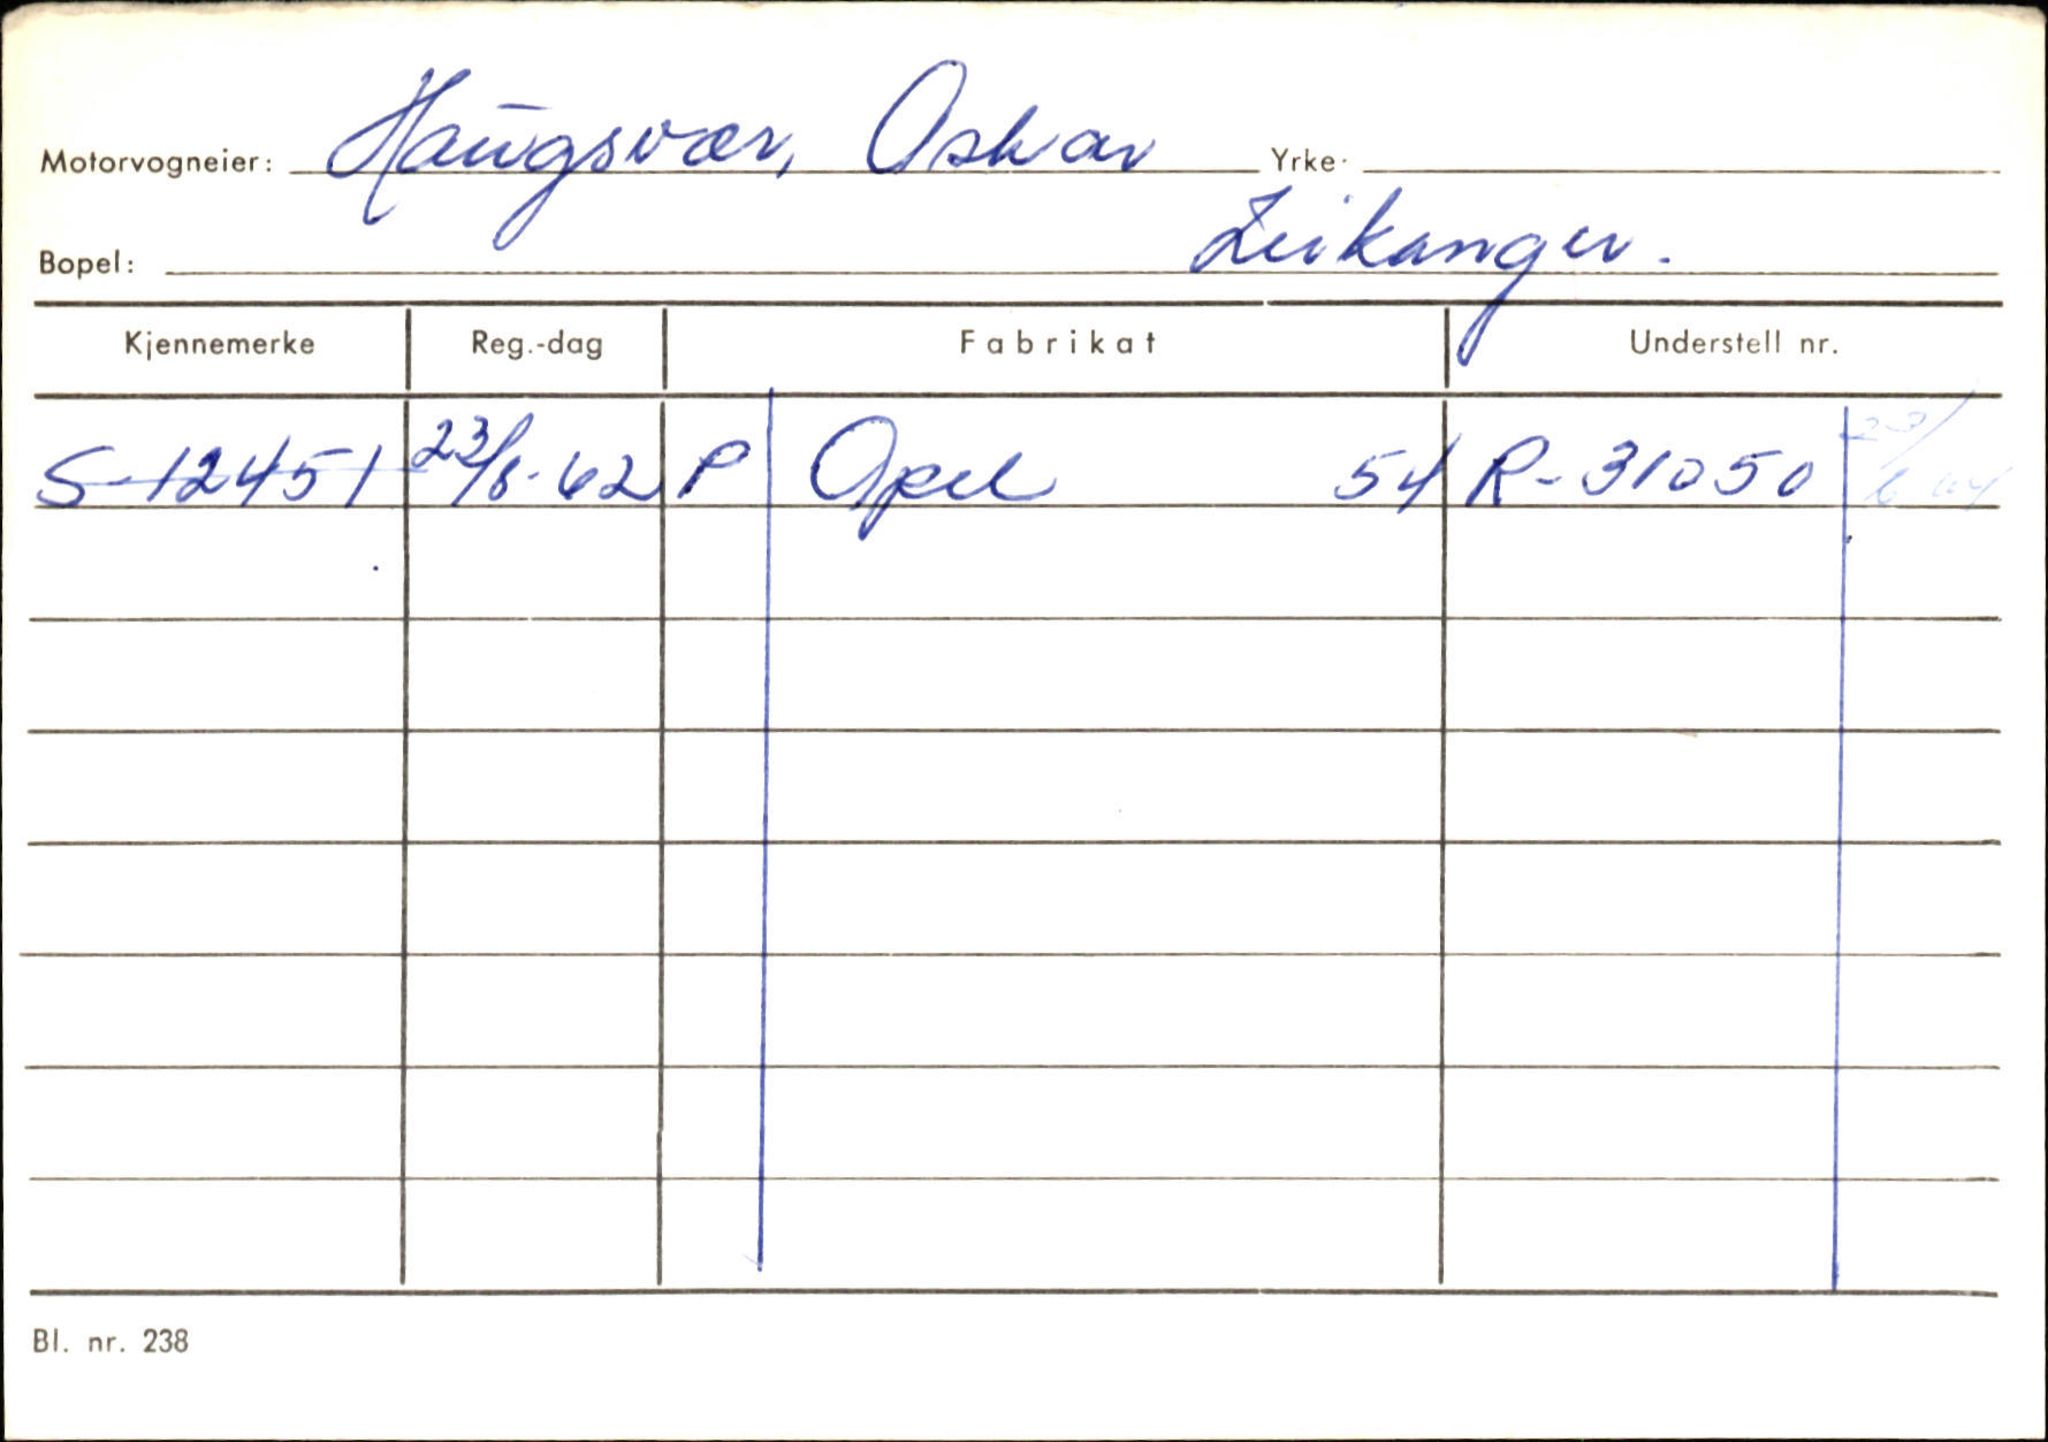 Motorvogneier: Haugsvær, Oskar Yrke:
Bopel: Leikanger.
Kjennemerke Reg.-dag Fabrikat Understell nr.
S-12451 23/8-62 P Opel 54 R-31050 23/6
Bl. nr. 238